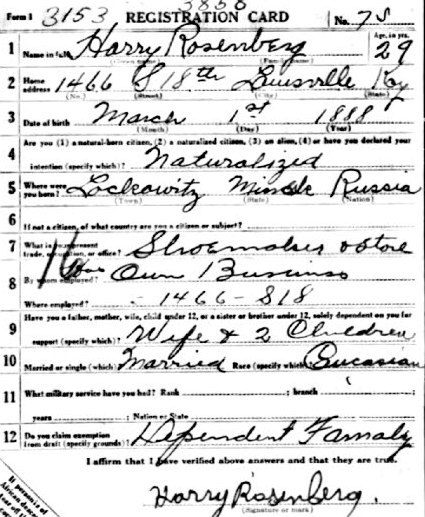 3858
Form 1 3153 REGISTRATION CARD No. 75
1 Name in full Harry Rosenberg Age, in yrs. 29
(Given name) (Family name)
2 Home address 1466 S 18th Louisville Ky
(No.) (Street) (City) (State)
3 Date of birth March 1st 1888
(Month) (Day) (Year)
4 Are you (1) a natural-born citizen, (2) a naturalized citizen, (3) an alien, (4) or have you declared your
intention (specify which)? Naturalized
5 Where were you born? Minsk Russia
(Town) (State) (Nation)
6 If not a citizen, of what country are you a citizen or subject?
7 What is your present trade, occupation, or office? Shoemaker store
8 By whom employed? Own Business
Where employed? 1466 - S18
9 Have you a father, mother, wife, child under 12, or a sister or brother under 12, solely dependent on you for
support (specify which)? Wife & 2 Children
10 Married or single (which)? Married Race (specify which)? Cucasian
11 What military service have you had? Rank ; branch
years ; Nation or State
12 Do you claim exemption from draft (specify grounds)? Dependent Famaly
I affirm that I have verified above answers and that they are true.
Harry Rosenberg.
(Signature or mark)
If person is